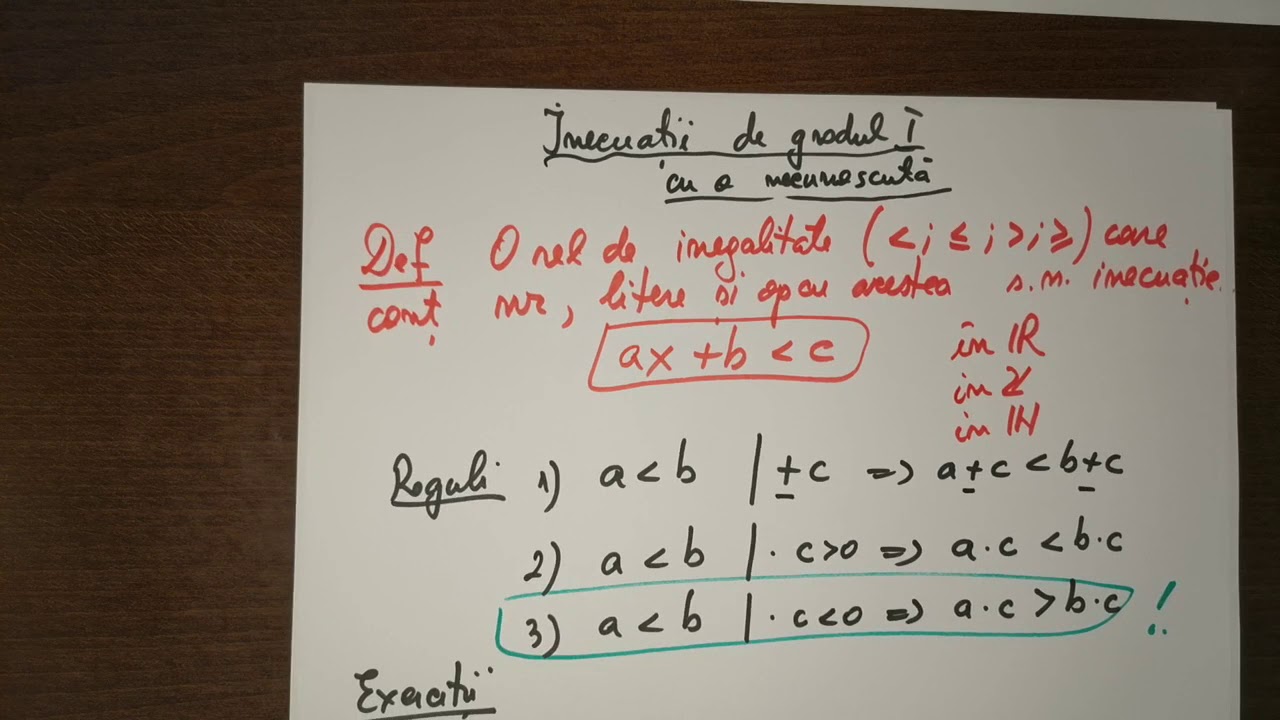 Inecuatii de gradul I
cu o necunoscută
Def O rel de inegalitate (< ; ≤ ; > ; ≥) care
conț nr, litere si op cu acestea s.m. inecuație.
ax + b < c
în IR
în Z
în IN
Reguli 1) a < b | ± c => a ± c < b ± c
2) a < b | · c > 0 => a · c < b · c
3) a < b | · c < 0 => a · c > b · c !
Exerciții